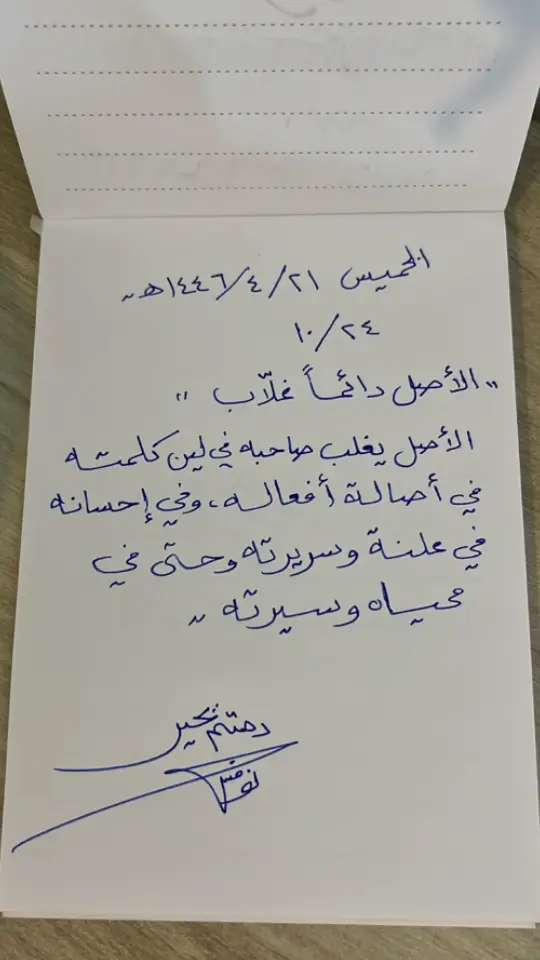 الخميس ٢١/٤/١٤٤٦هـ
١٠/٢٤
"الأصل دائماً غلّاب"
الأصل يغلب صاحبه في لين كلمته
في أصالة أفعاله، وفي إحسانه
في علنة وسريرته وحتى في
محياه وسيرته
دمتم بخير